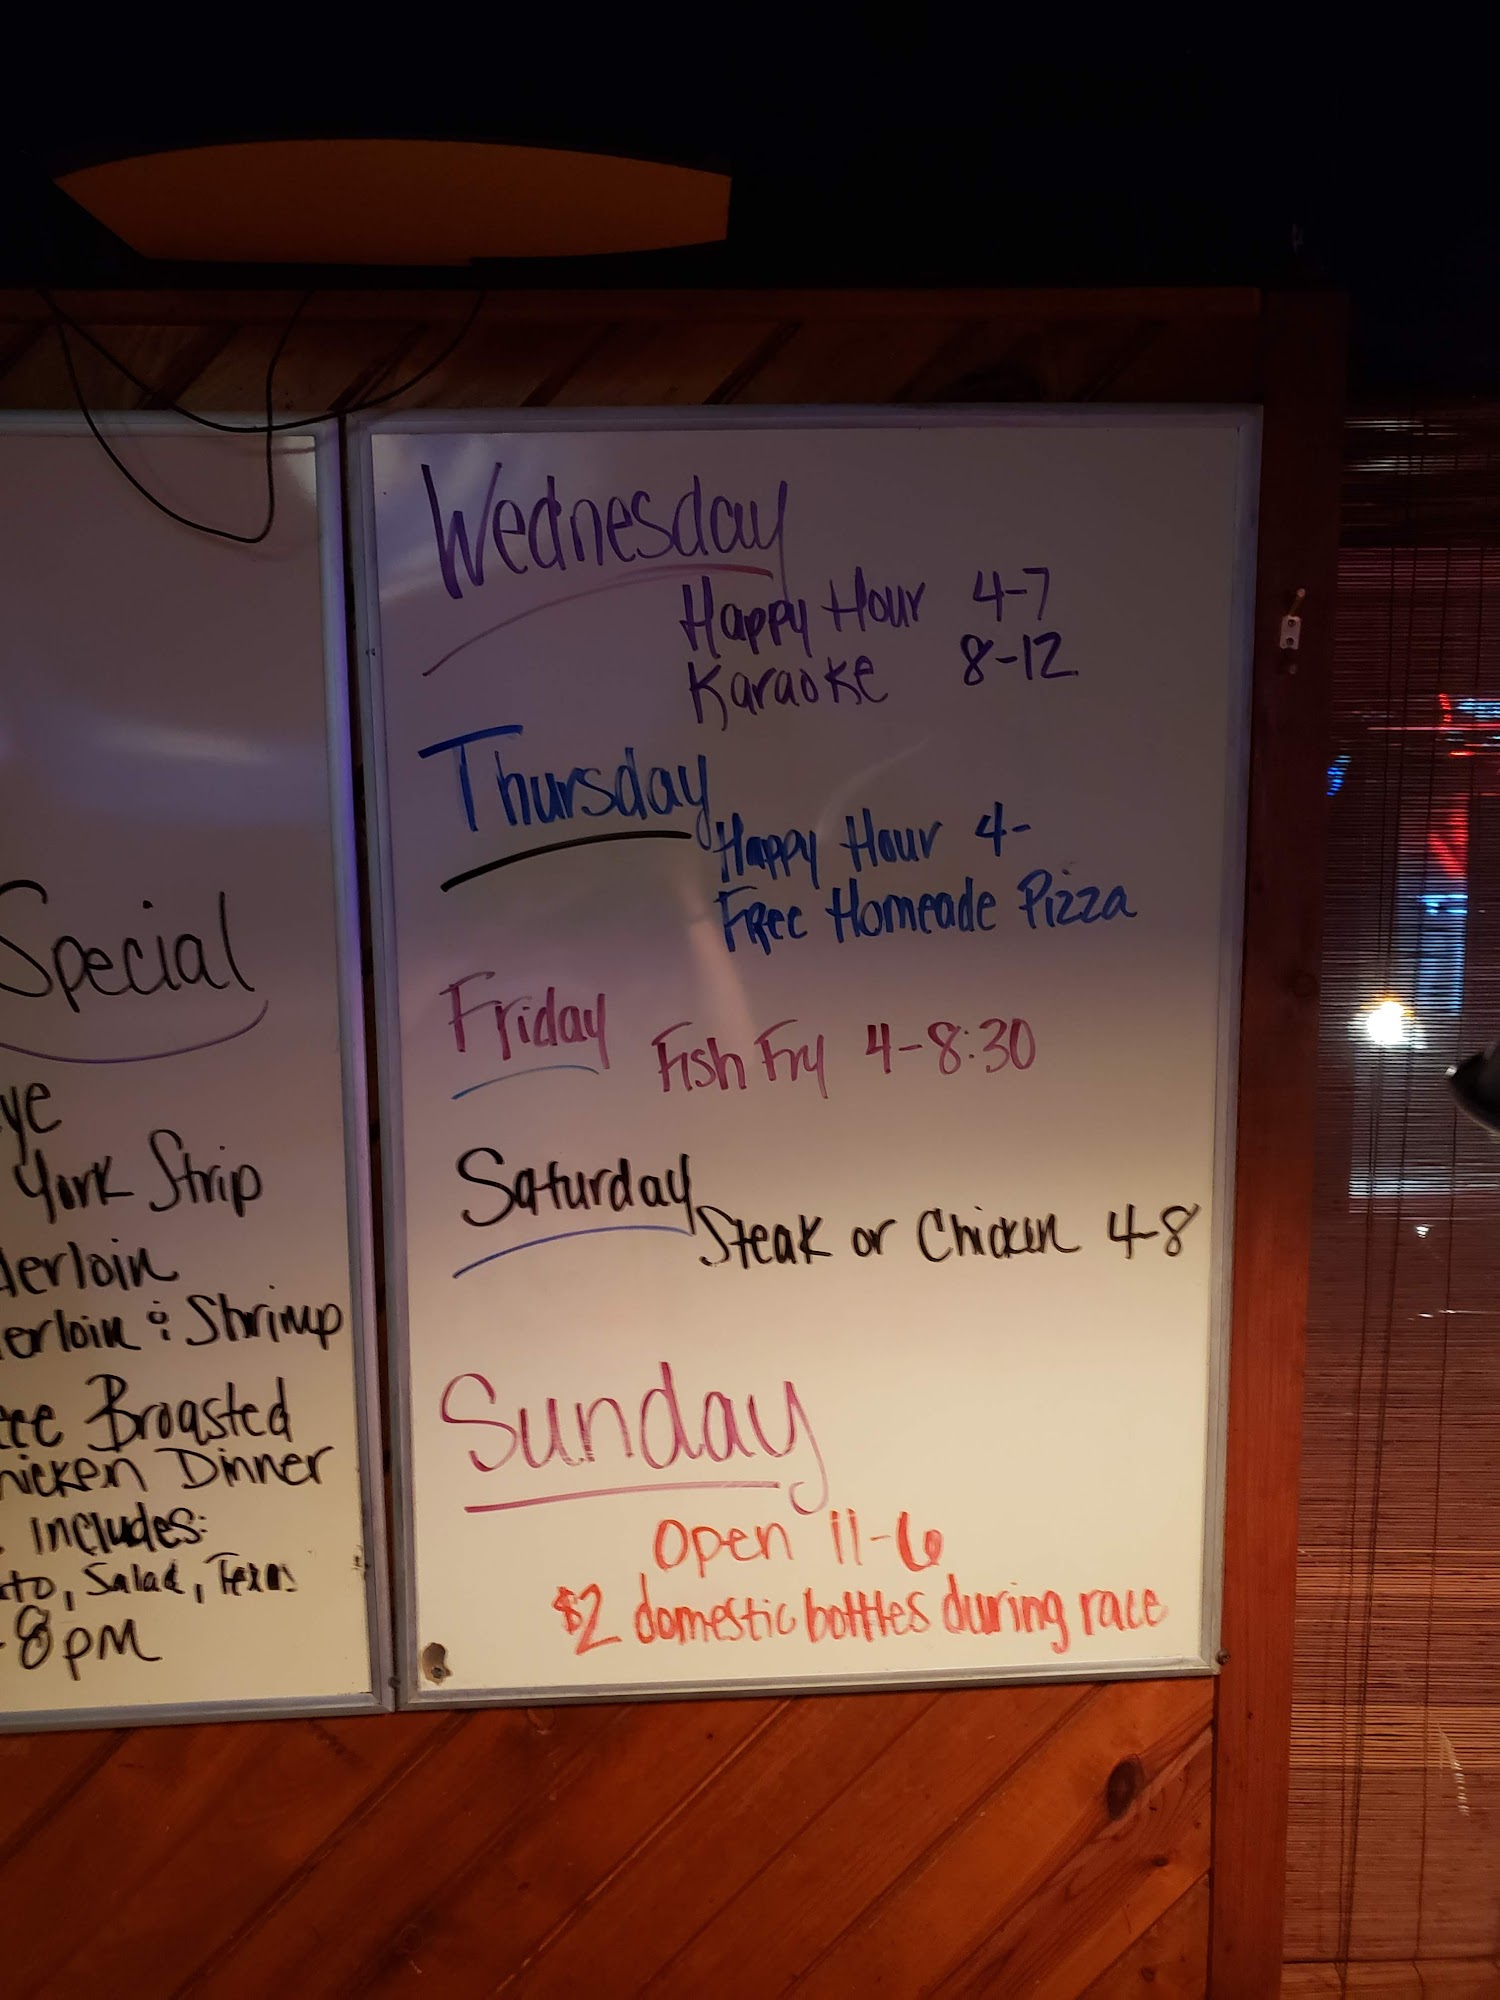 Special
York Strip
& Shrimp
Broasted
Dinner
includes:
Salad,
8pm
Wednesday
Happy Hour 4-7
Karaoke 8-12
Thursday
Happy Hour 4-
Free Homeade Pizza
Friday
Fish Fry 4-8:30
Saturday
Steak or Chicken 4-8
Sunday
Open 11-6
$2 domestic bottles during race